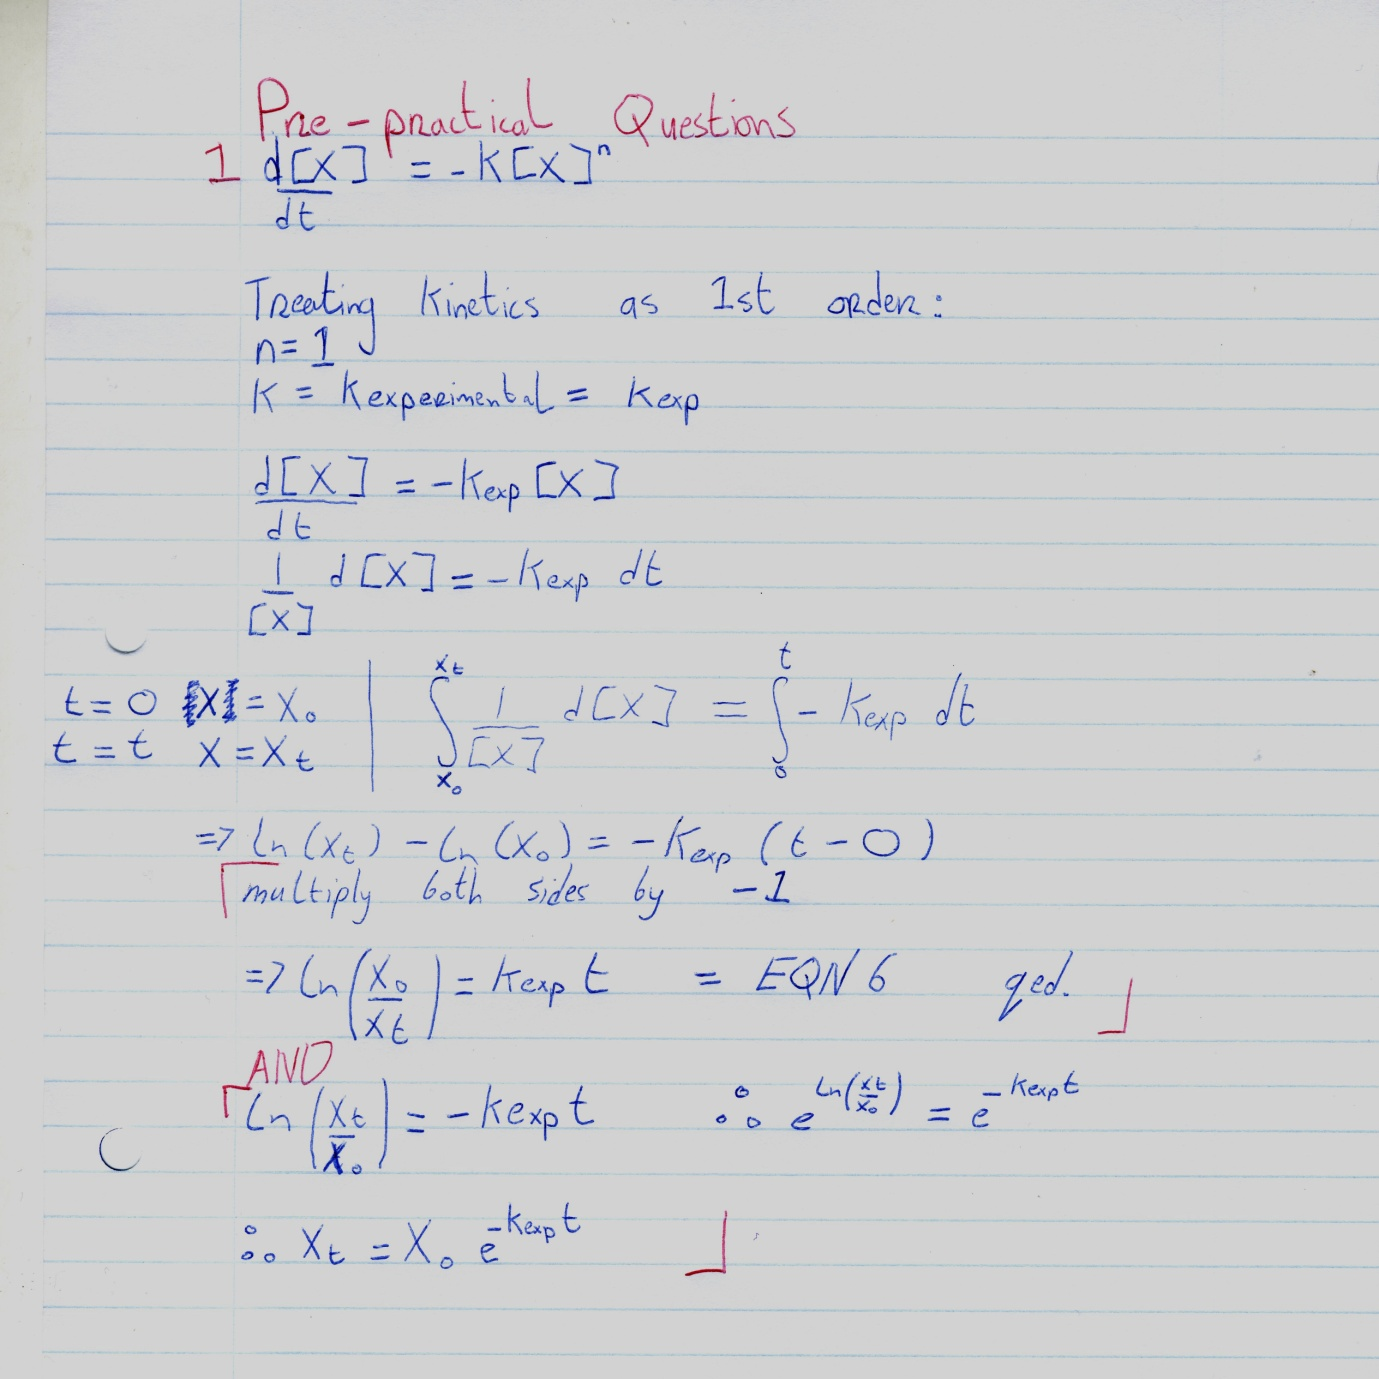 Pre-practical Questions
1 d[X]/dt = -K[X]ⁿ
Treating Kinetics as 1st order:
n = 1
K = Kexperimental = Kexp
d[X]/dt = -Kexp [X]
1/[X] d[X] = -Kexp dt
t = 0 [X] = X₀ | ∫_{X₀}^{Xt} 1/[X] d[X] = ∫_0^t - Kexp dt
t = t X = Xt
=> Ln (Xt) - Ln (X₀) = -Kexp (t - 0)
multiply both sides by -1
=> Ln (X₀/Xt) = Kexp t = EQN 6 qed.
AND
Ln (Xt/X₀) = -Kexp t ∴ e^{Ln(Xt/X₀)} = e^{-Kexp t}
∴ Xt = X₀ e^{-Kexp t}